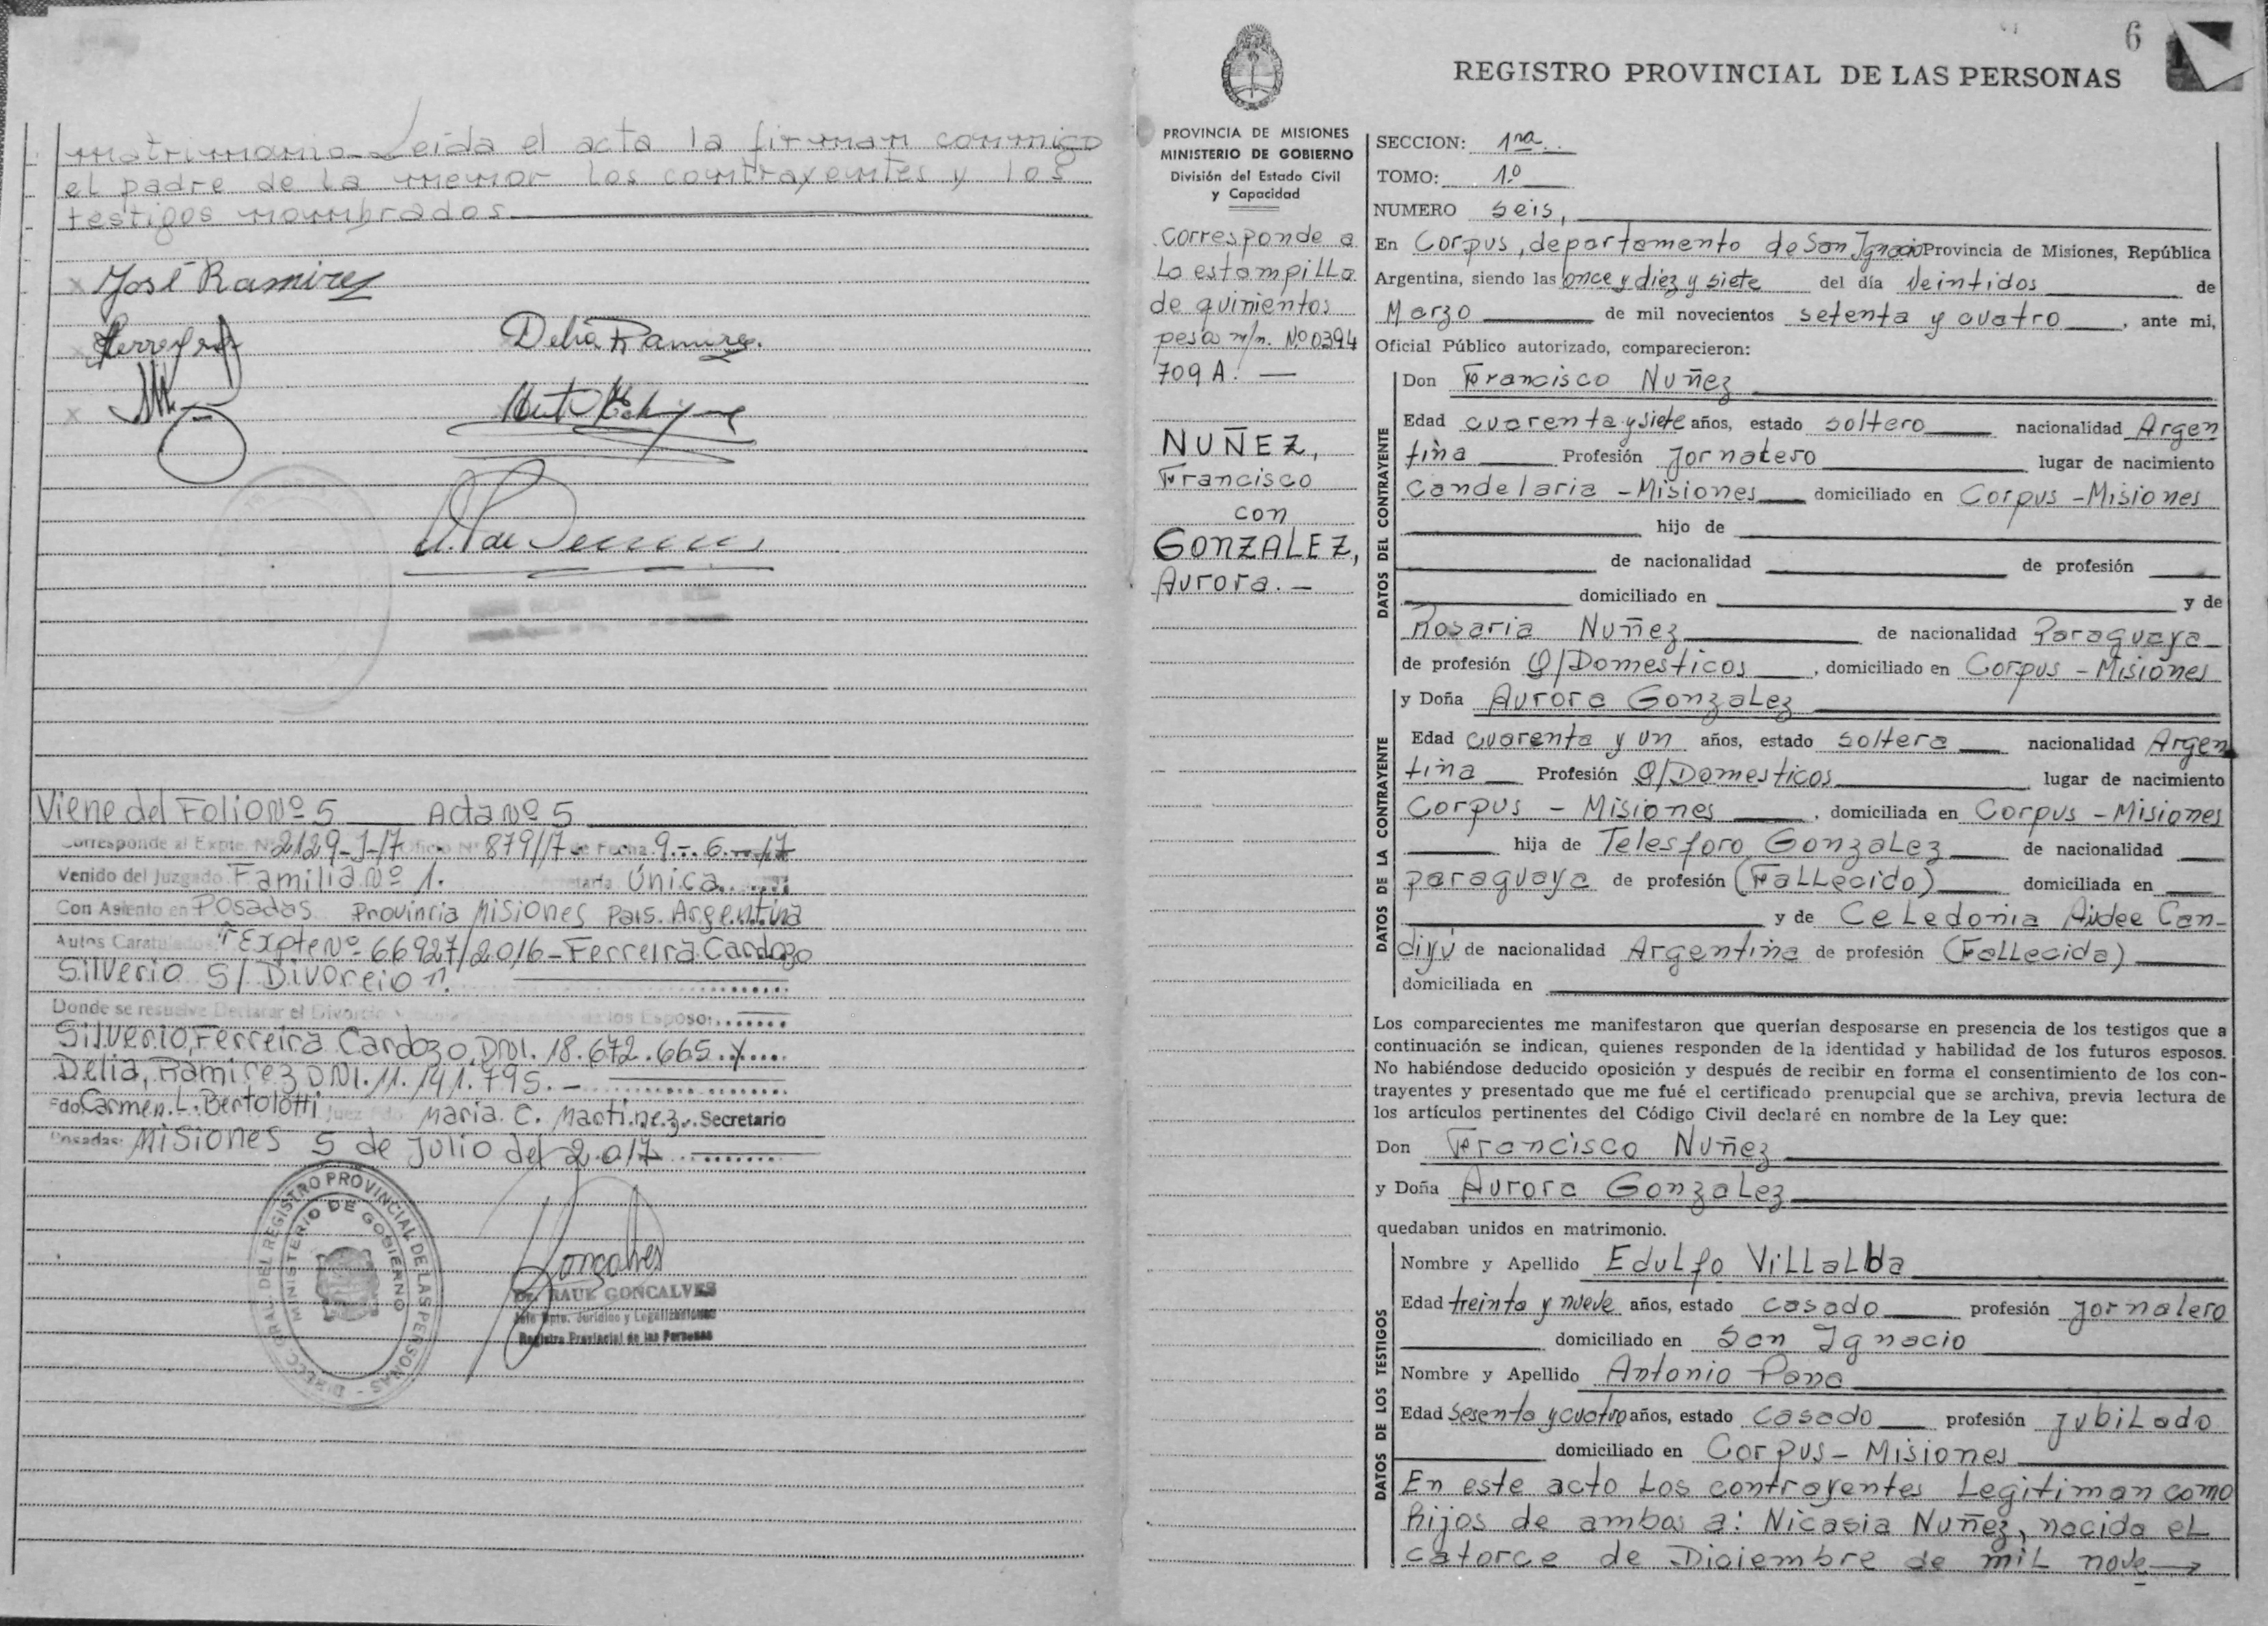 matrimonio_ Leida el acta la firman conmigo
el padre de la menor los contrayentes y los
testigos nombrados
José Ramirez
Delia Ramirez.
Viene del Folio Nº 5 Acta Nº 5
Corresponde al Expte. Nº 2129-J-17 Oficio Nº 879/17 de Fecha 9.-.6.-.17
Venido del Juzgado Familia Nº 1. Secretaría Única
Con Asiento en Posadas Provincia Misiones Pais. Argentina
Autos Caratulados: "Expte Nº 66927/2016-Ferreira Cardozo
Silverio S/ Divorcio".
Donde se resuelve Declarar el Divorcio de los Esposo:
Silverio, Ferreira Cardozo, DNI. 18.672.665 y
Delia, Ramirez DNI. 11.141.795.-
Fdo Carmen. L. Bertolotti Juez Fdo Maria. C. Martinez. Secretario
Posadas: Misiones 5 de Julio del 2017
DIRECC. GRAL. DEL REGISTRO PROVINCIAL DE LAS PERSONAS -
MINISTERIO DE GOBIERNO
Goncalves
Dr. RAUL GONCALVES
Jefe Dpto. Jurídico y Legalizaciones
Registro Provincial de las Personas
6
REGISTRO PROVINCIAL DE LAS PERSONAS
PROVINCIA DE MISIONES
MINISTERIO DE GOBIERNO
División del Estado Civil
y Capacidad
corresponde a
la estampilla
de quinientos
pesos m/n. Nº 0394
709 A. —
NUÑEZ,
Francisco
con
GONZALEZ,
Aurora.-
SECCION: 1ra.
TOMO: 1º
NUMERO seis,
En Corpus, departamento de San Ignacio Provincia de Misiones, República
Argentina, siendo las once y diez y siete del día veintidos de
Marzo de mil novecientos setenta y cuatro, ante mi,
Oficial Público autorizado, comparecieron:
DATOS DEL CONTRAYENTE
Don Francisco Nuñez
Edad cuarenta y siete años, estado soltero nacionalidad Argen
tina Profesión Jornalero lugar de nacimiento
Candelaria -Misiones domiciliado en Corpus -Misiones
hijo de
de nacionalidad de profesión
domiciliado en y de
Rosaria Nuñez de nacionalidad Paraguaya
de profesión Q/Domesticos, domiciliado en Corpus -Misiones
DATOS DE LA CONTRAYENTE
y Doña Aurora Gonzalez
Edad cuarenta y un años, estado soltera nacionalidad Argen
tina Profesión Q/Domesticos lugar de nacimiento
Corpus - Misiones, domiciliada en Corpus -Misiones
hija de Telesforo Gonzalez de nacionalidad
paraguaya de profesión (Fallecido) domiciliada en
y de Celedonia Aidee Can-
diyú de nacionalidad Argentina de profesión (Fallecida)
domiciliada en
Los comparecientes me manifestaron que querían desposarse en presencia de los testigos que a
continuación se indican, quienes responden de la identidad y habilidad de los futuros esposos.
No habiéndose deducido oposición y después de recibir en forma el consentimiento de los con-
trayentes y presentado que me fué el certificado prenupcial que se archiva, previa lectura de
los artículos pertinentes del Código Civil declaré en nombre de la Ley que:
Don Francisco Nuñez
y Doña Aurora Gonzalez
quedaban unidos en matrimonio.
DATOS DE LOS TESTIGOS
Nombre y Apellido Edulfo Villalba
Edad treinta y nueve años, estado casado profesión jornalero
domiciliado en San Ignacio
Nombre y Apellido Antonio
Edad sesenta y cuatro años, estado casado profesión jubilado
domiciliado en Corpus- Misiones
En este acto los contrayentes legitiman como
hijos de ambos a: Nicasia Nuñez, nacida el
catorce de Diciembre de mil nove